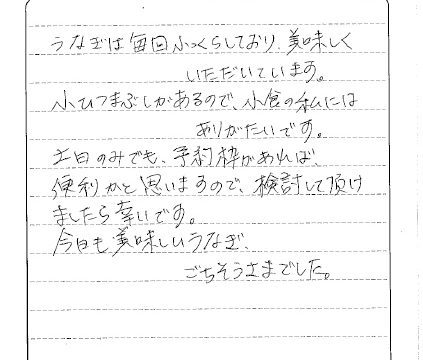 うなぎは毎回ふっくらしており、美味しく
いただいています。
小ひつまぶしがあるので、小食の私には
ありがたいです。
土日のみでも、予約枠があれば、
便利かと思いますので、検討して頂け
ましたら幸いです。
今日も美味しいうなぎ、
ごちそうさまでした。